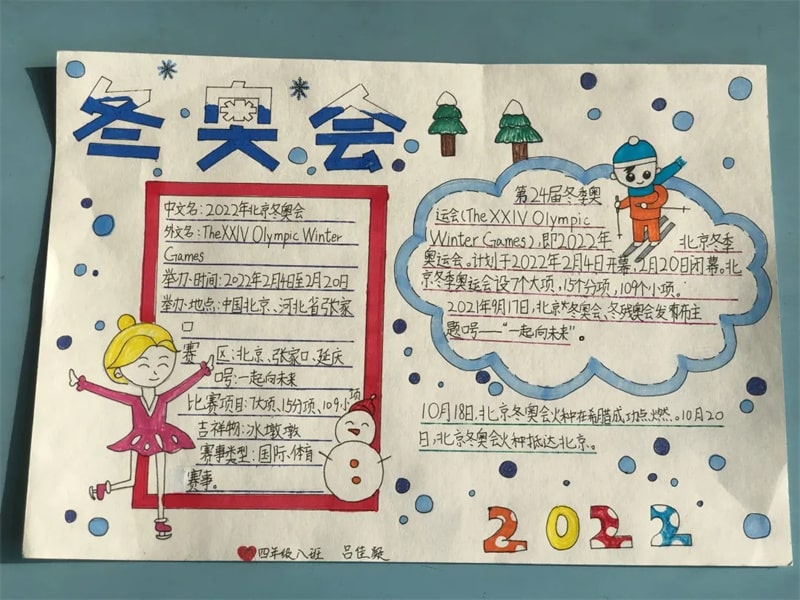 冬奥会
中文名:2022年北京冬奥会
外文名:The XXIV Olympic Winter
Games
举办时间:2022年2月4日至2月20日
举办地点:中国北京、河北省张家
口
赛 区:北京、张家口、延庆
口号:一起向未来
比赛项目:7大项、15分项、109小项
吉祥物:冰墩墩
赛事类型:国际、体育
赛事。
第24届冬季奥
运会(The XXIV Olympic
Winter Games),即2022年 北京冬季
奥运会,计划于2022年2月4日开幕,2月20日闭幕。北
京冬季奥运会设7个大项,15个分项,109个小项。
2021年9月17日,北京冬奥会、冬残奥会发布主
题口号——“一起向未来”。
10月18日,北京冬奥会火种在希腊成功点燃。10月20
日,北京冬奥会火种抵达北京。
2022
四年级八班 吕佳